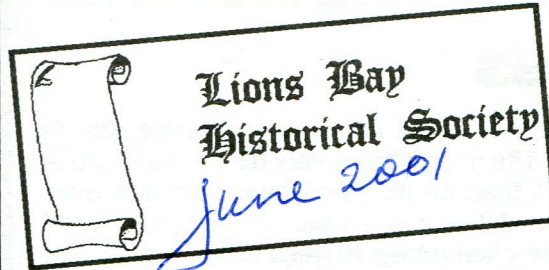 Lions Bay
Historical Society
June 2001